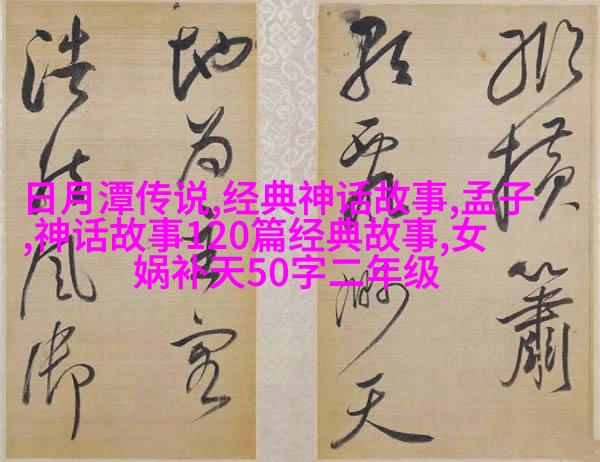 日月潭传说,经典神话故事,孟子
,神话故事120篇经典故事,女
娲补天50字二年级
横簫
天
地为
浩风御